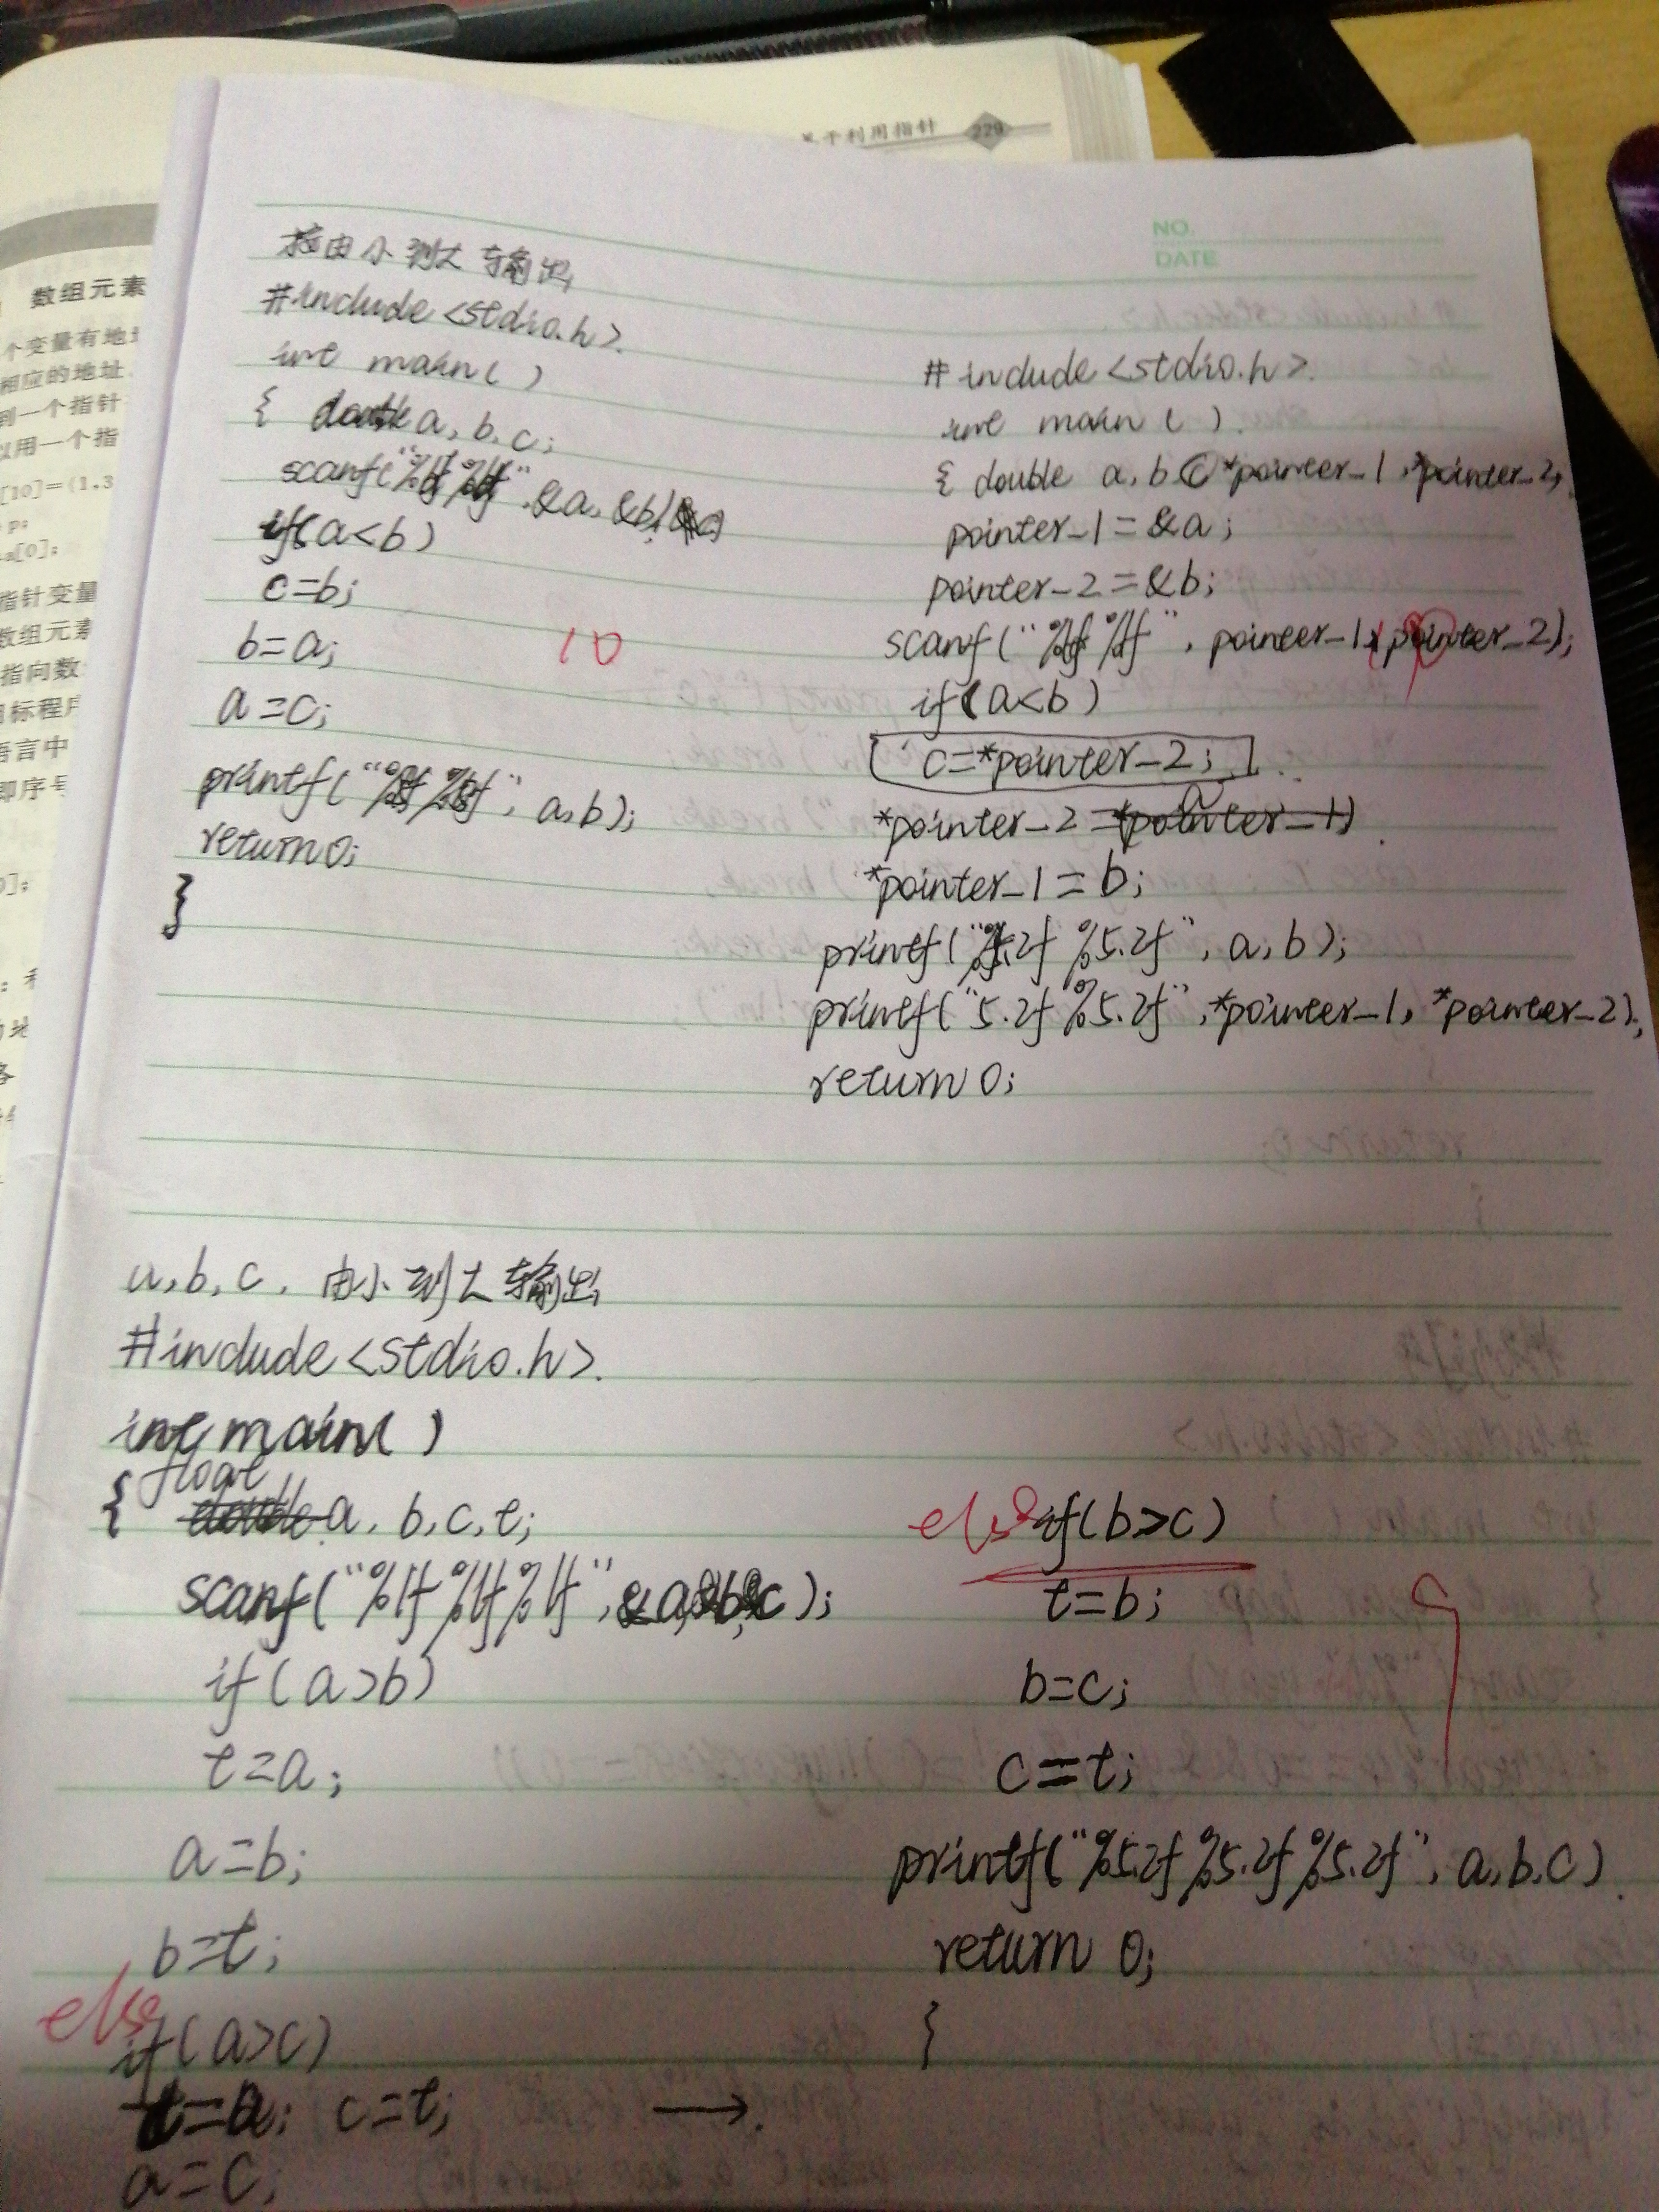 基于利用指针 229
NO.
DATE
数组元素
个变量有地址
相应的地址
到一个指针
以用一个指
[10]={1,3
p;
a[0];
指针变量
数组元素
指向数
标程序
语言中
即序号
按由小到大输出
#include <stdio.h>
int main( )
{ double a, b, c;
scanf("%lf %lf", &a, &b
if(a<b)
c=b;
b=a;
10
a=c;
printf(" ", a,b);
return 0;
}
#include <stdio.h>
int main ( )
{ double a, b c *pointer_1, *pointer_2,
pointer_1 = &a;
pointer_2 = &b;
scanf("%lf %lf", pointer_1, pointer_2);
if(a<b)
c=*pointer_2;
*pointer_2 = a
*pointer_1 = b;
printf("%5.2f %5.2f", a, b);
printf("5.2f %5.2f", *pointer_1, *pointer_2),
return 0;
a, b, c, 由小到大输出
#include <stdio.h>
int main( )
{ float a, b, c, t;
scanf("%lf %lf %lf", &a,&b,&c);
if(a>b)
t=a;
a=b;
b=t;
else
if(a>c)
t=a; c=t; →
a=c;
else if(b>c)
t=b;
b=c;
c=t;
printf("%5.2f %5.2f %5.2f", a,b,c)
return 0;
}